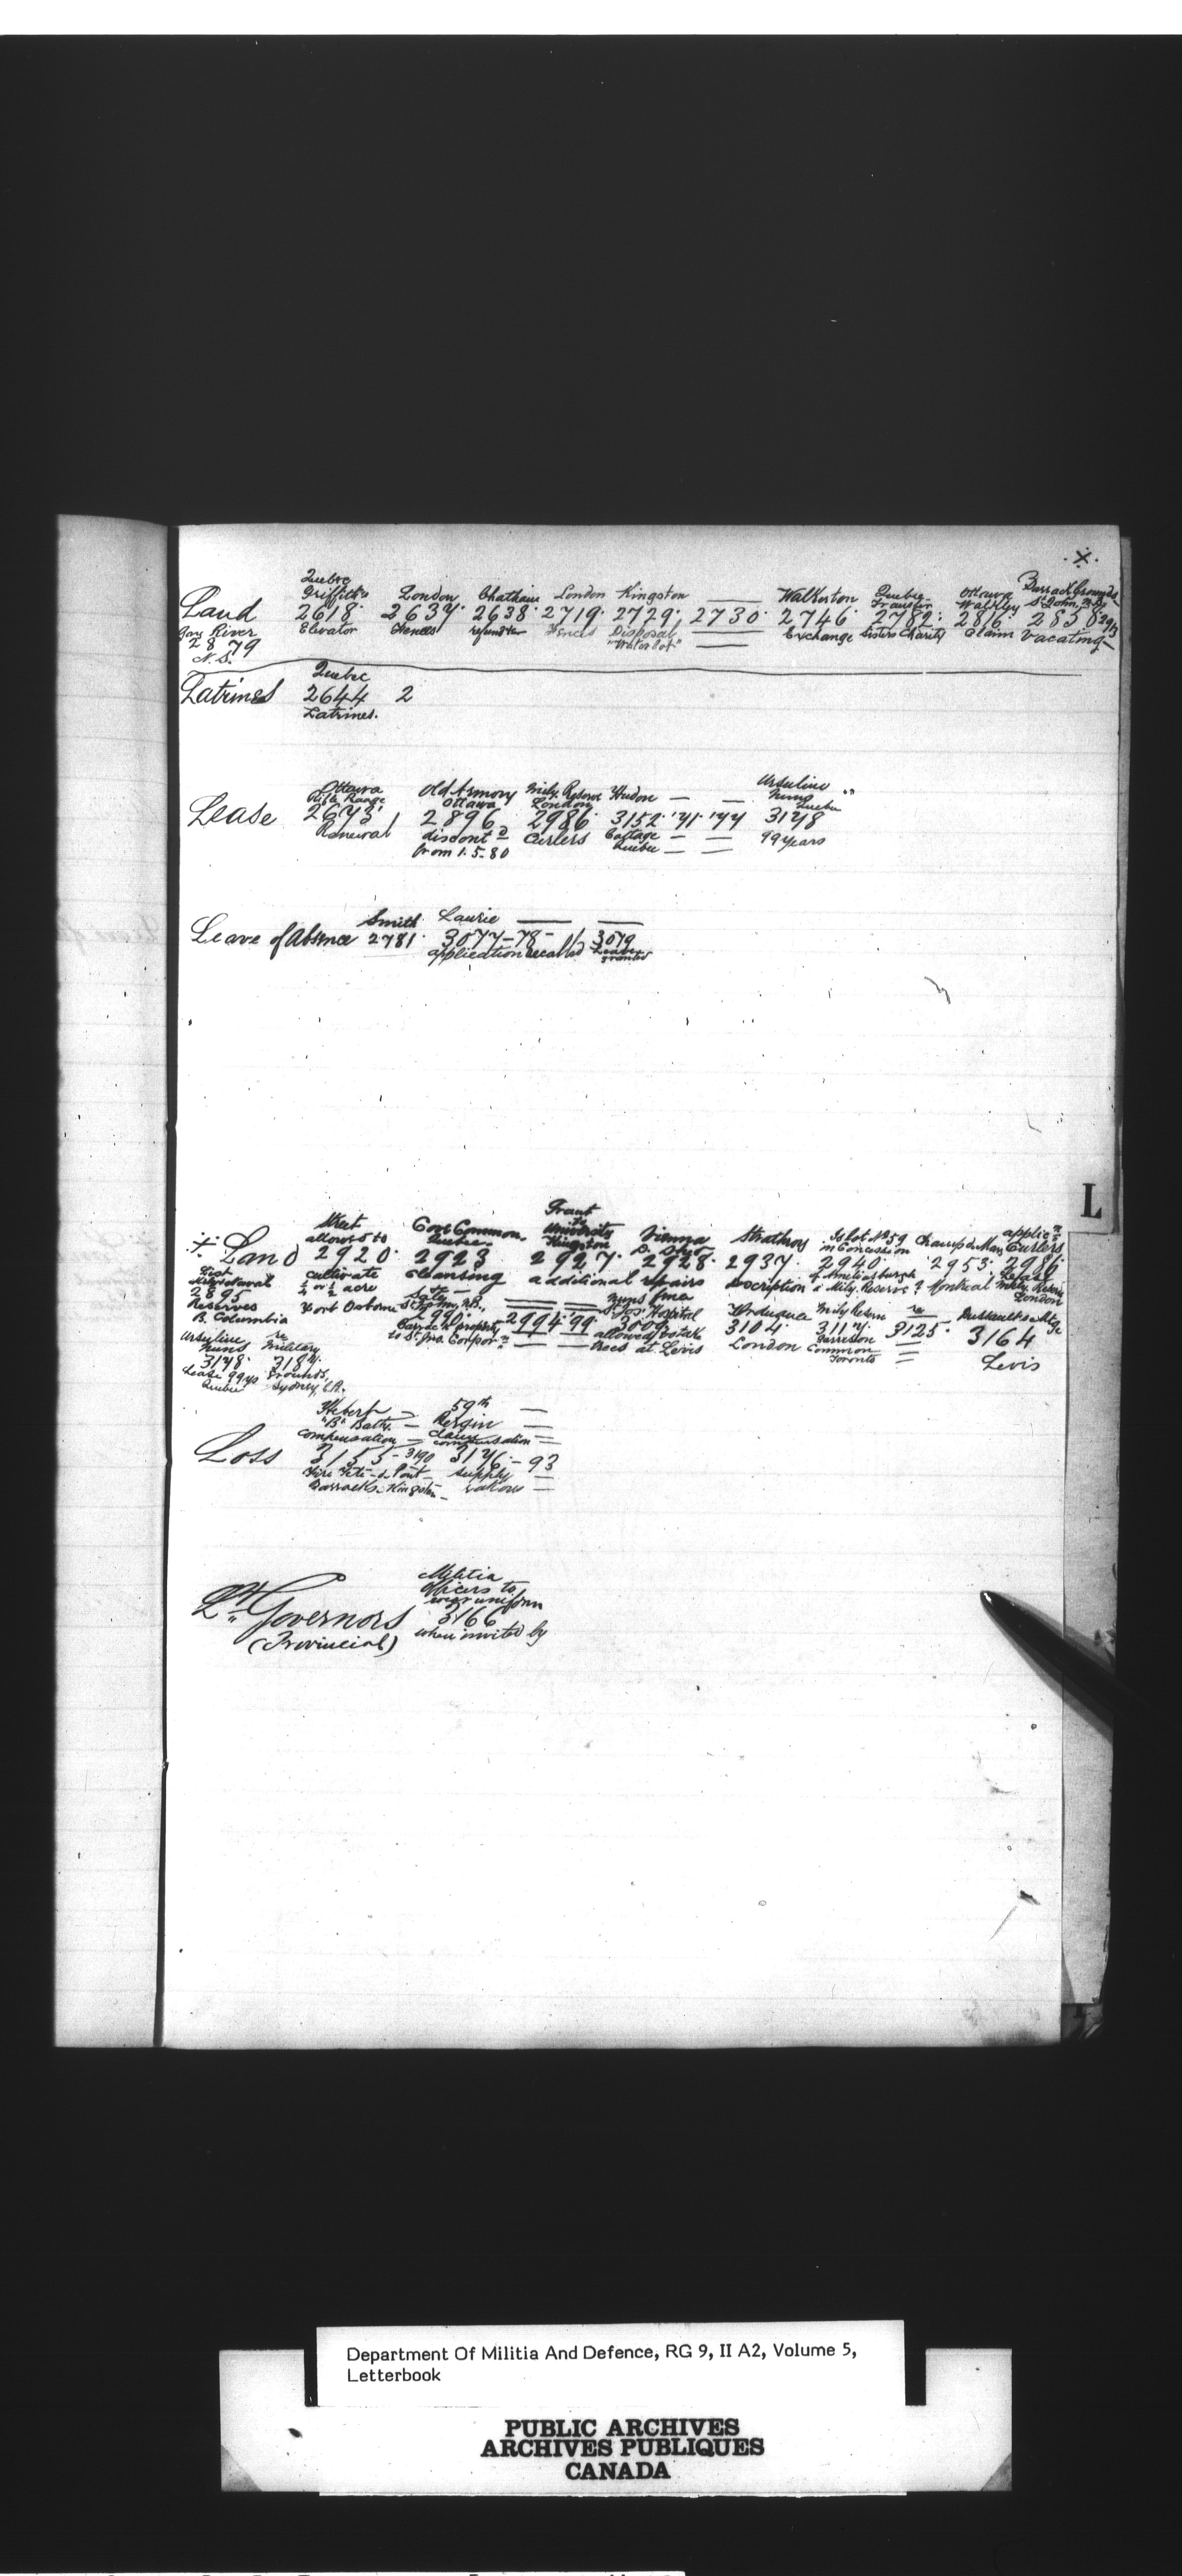 .X.
Quebec
Griffith's London Chatham London Kingston —— Walkerton Quebec Ottawa Barrack Grounds
Transfer Walkley St John, P.Q.
Land 2618 · 2637 · 2638 · 2719 · 2729, 2730 · 2746 · 2782 : 2816 · 2858
Elevator Fences Fences Disposal —— Exchange Sisters Charity Claim Vacating
River "Water lot" ——
2879
N.S.
Quebec
Latrines 2644 2
Latrines.
Ottawa Old Armory Mily. Reserve Hudon — — Ursuline "
Rifle Range Ottawa London Nuns
Quebec
Lease 2673 2896 2986 · 3152 · '71 · '77 3178
Renewal discont'd Curlers Cottage — — 99 years
from 1.5.80 Quebec — —
Smith Laurie —— ——
Leave of Absence 2781 · 3077–78– / 3079
application Leave
granted
Grant
Street Cove Common to Vienna Strathroy Is lot No 59 Champ de Mars applicn
allowed to Quebec University D. Shed in Concession Curlers
Kingston
Land 2920 · 2923 2927 · 2928 · 2937 · 2940 · 2953 · 2986
List cultivate cleansing additional repairs description of Ameliasburgh Montreal Lease
¼ or ½ acre a Mily. Reserve ? Mily. Reserve
2895 London
Reserves Port Osborne
B. Columbia 2990 · 2994 · 99 · 3009 3104 · 3117 3125 · 3164
St. Jos. Hospital Mily Reserve re
Barrack property allowed to take London Garrison Levis
to St. Jno. Corporn trees at Levis Common
Toronto
Ursuline re
Nuns Military
3178 · 3184 ·
Lease 99 yrs Grounds,
Quebec Sydney, C.B.
Hebert — 59th —
"B" Baty. — Bergin —
compensation — claim —
compensation
Loss 3155 – 3190 3176 – 93
Fire Tête-du-Pont — supply —
Barracks Kingston — rations —
Militia
Officers to
wear uniform
Lt. Governors 3166
(Provincial) when invited by
L
Department Of Militia And Defence, RG 9, II A2, Volume 5,
Letterbook
PUBLIC ARCHIVES
ARCHIVES PUBLIQUES
CANADA